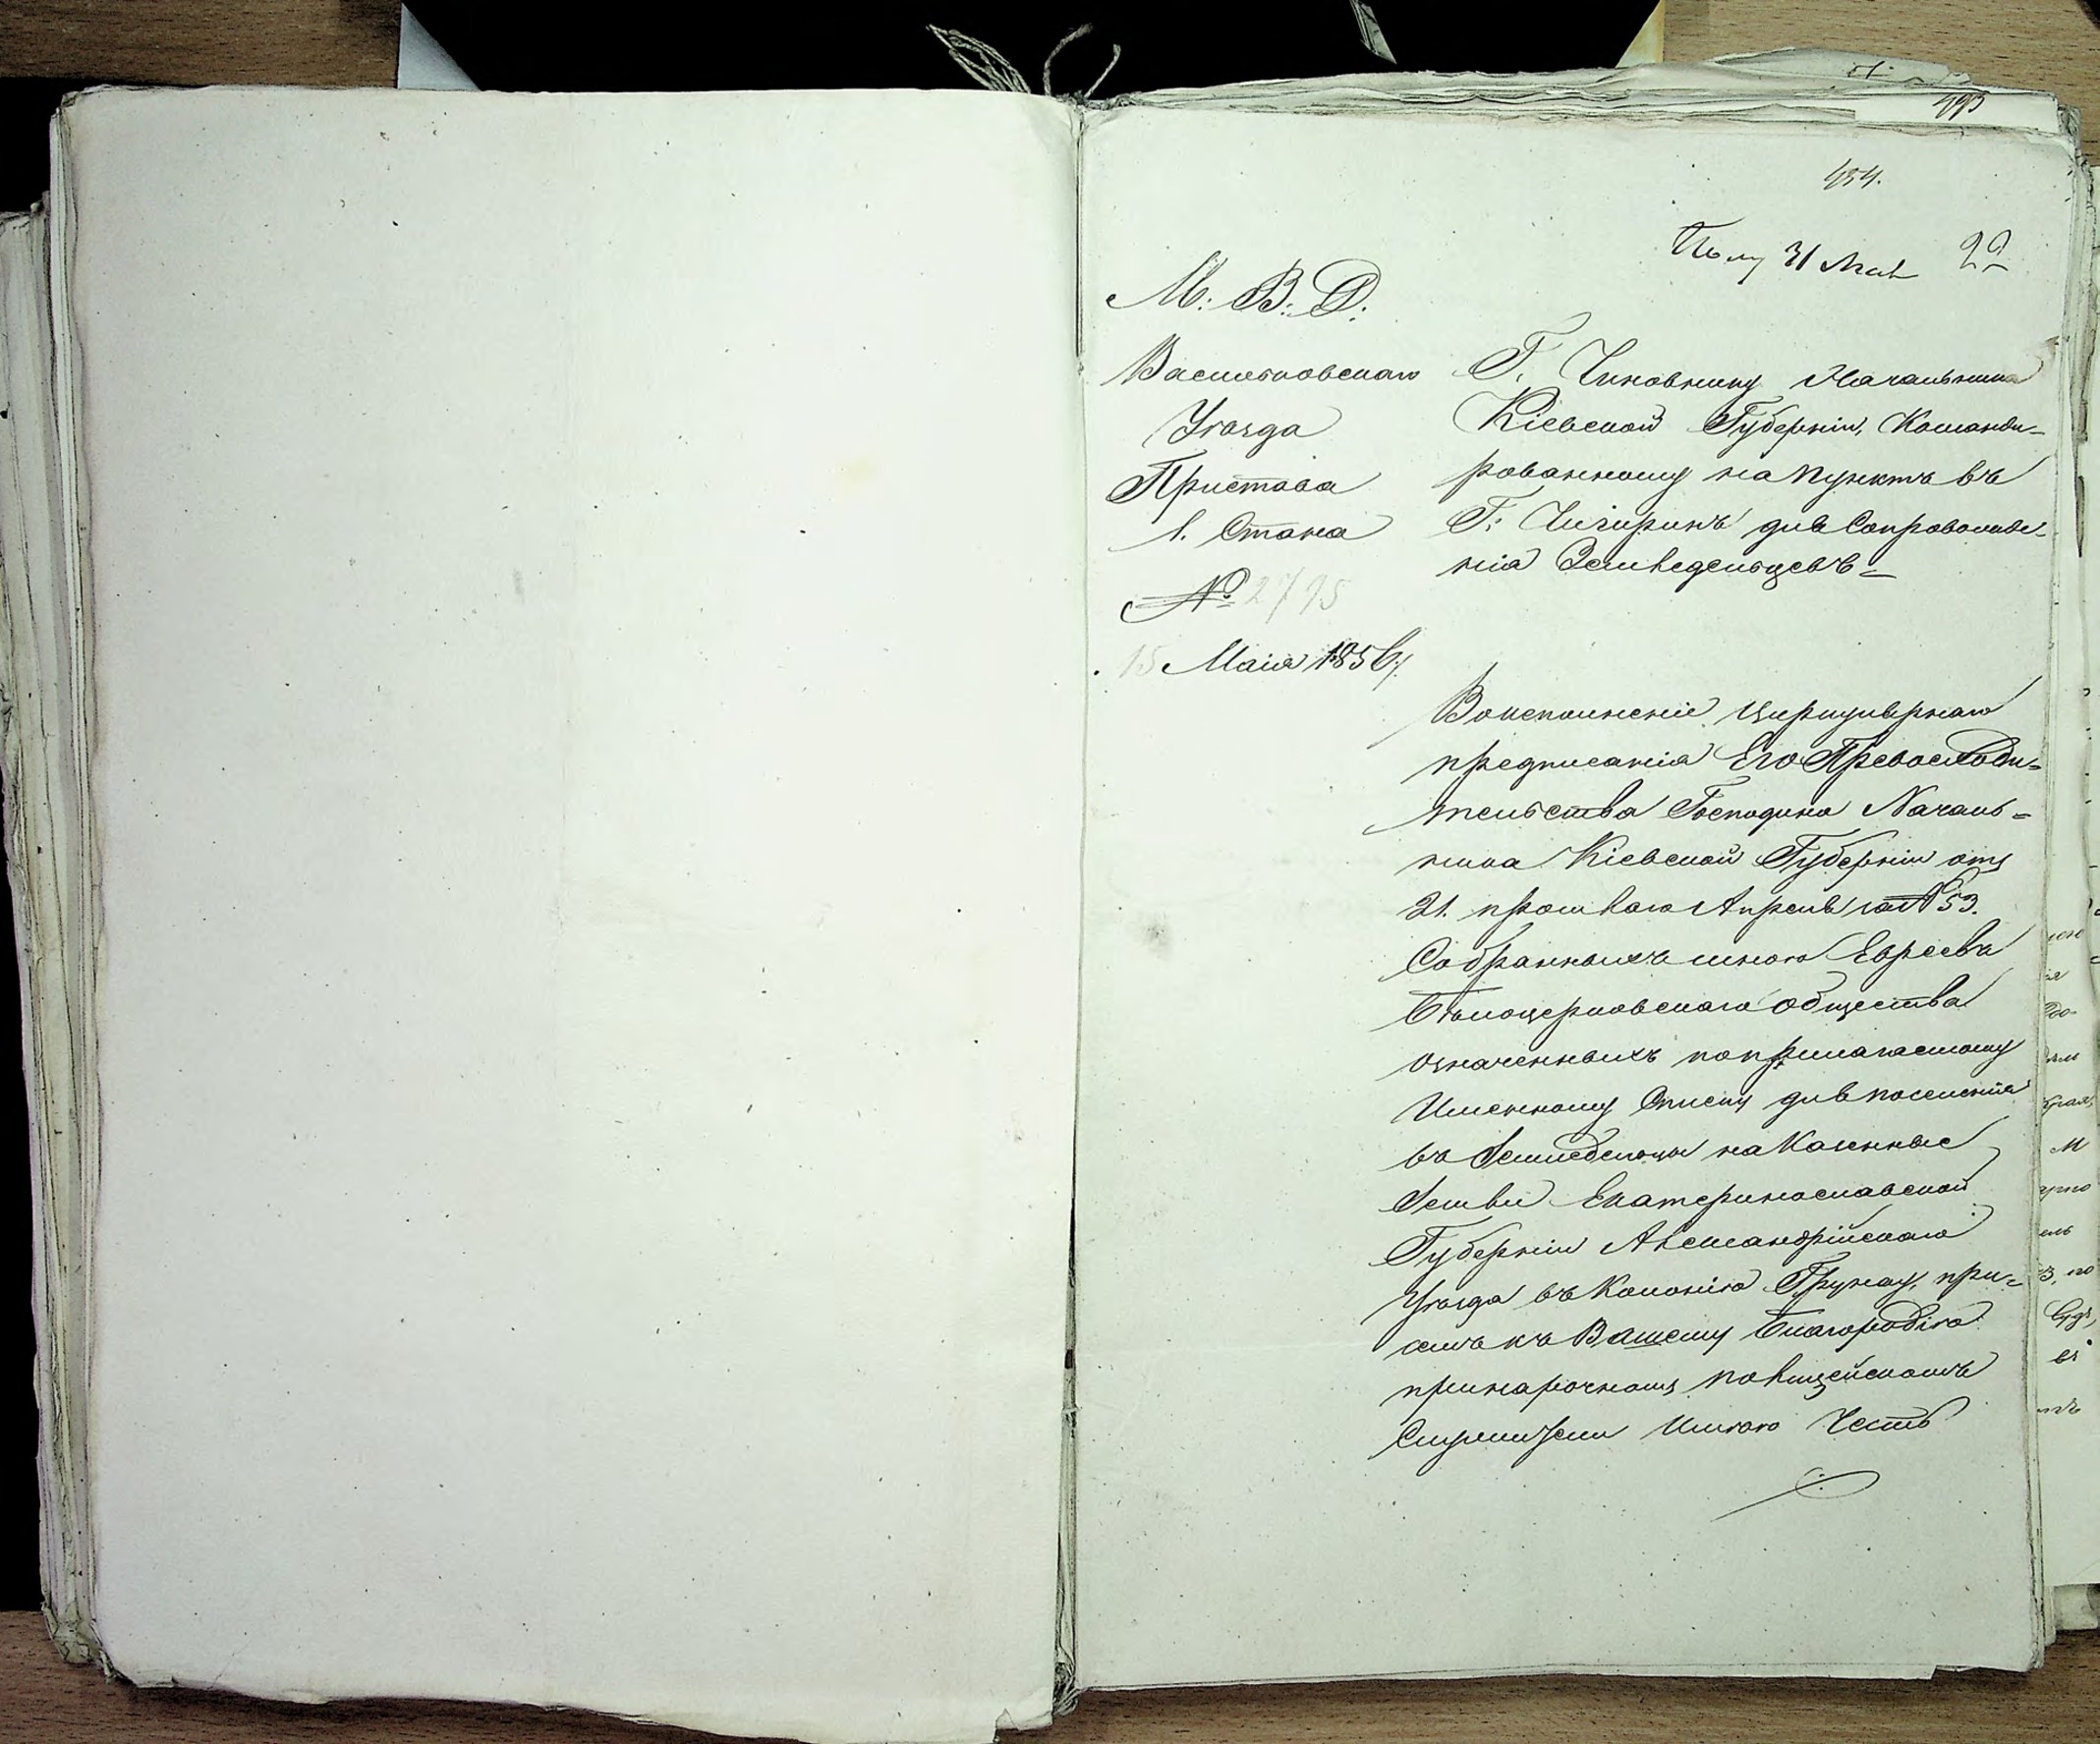 493
454.
Полу 31 Мая 22
М: В: Д:
Васильковскаго
Уѣзда
Пристава
1. Стана
№ 2795
15 Маія 1856 г.
Г. Чиновнику Начальника
Кіевской Губерніи, Команди-
рованному на Пунктъ въ
Г: Чигиринъ для Сопровожде-
нія Земледельцевъ=
Воисполненіе циркулярнаго
предписанія Его Превосходи=
тельства Господина Началь=
ника Кіевской Губерніи отъ
21. прошлаго Апреля за № 53.
Собранныхъ мною Евреевъ
Бѣлоцерковскаго общества
означенныхъ поприлагаемому
Именному Списку для поселенія
въ Земледельцы на Казенные
Земли Екатеринославской
Губерніи Александрійскаго
Уѣзда въ Колонію Грунау, при=
семъ къ Вашему Благородію
принарочномъ полицейскомъ
Служителе Имѣю Честь